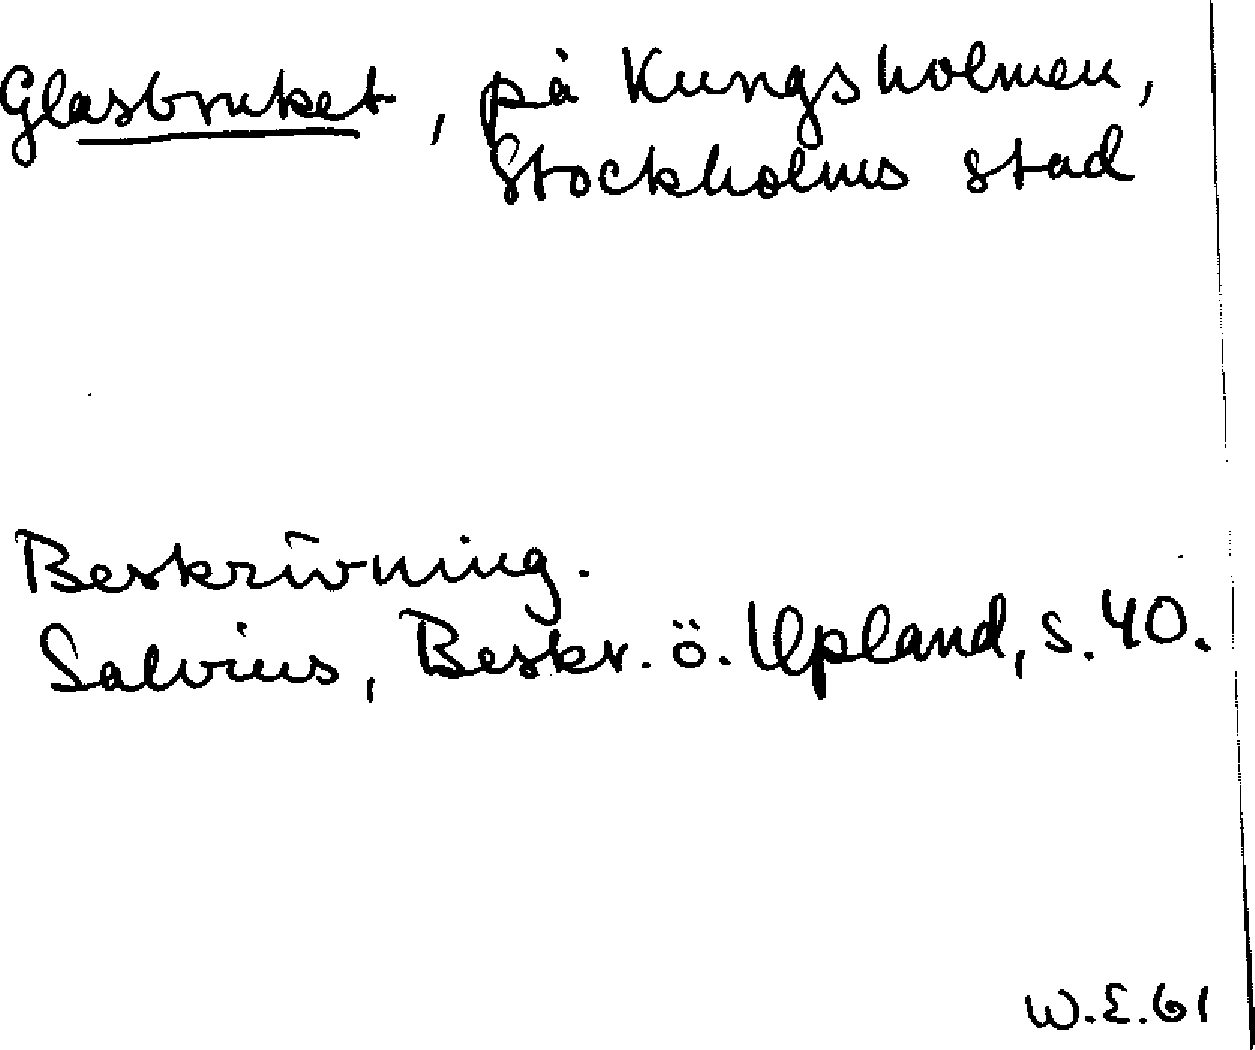 Glasbruket, på Kungsholmen,
Stockholms stad
Beskrivning.
Salvius, Beskr. ö. Upland, s. 40.
W.E.61